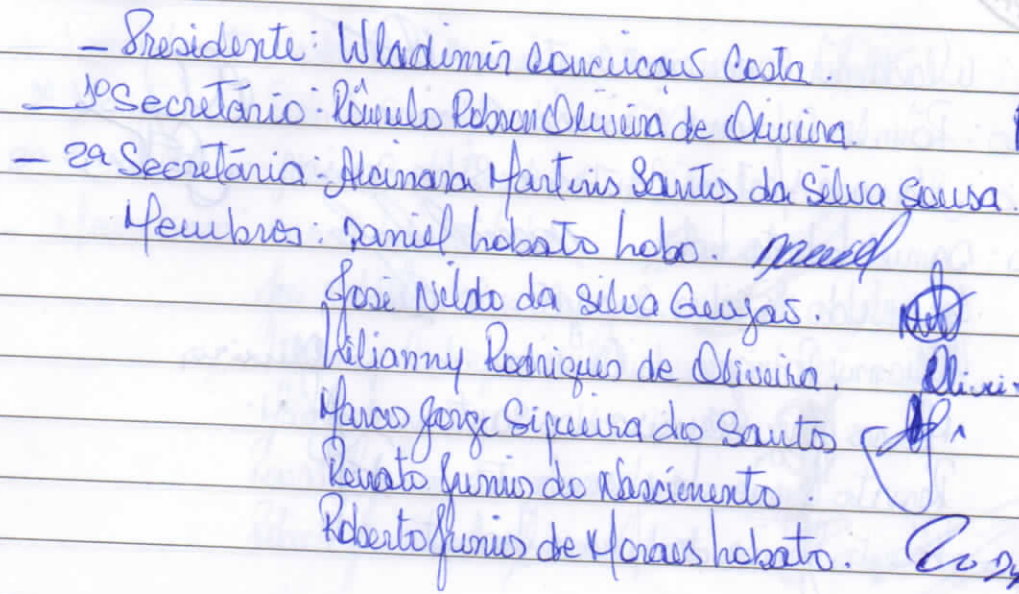 - Presidente: Wladimir Conceição Costa.
- 1º Secretário: Rômulo Robson Oliveira de Oliveira.
- 2ª Secretária - Alcinara Martins Santos da Silva Sousa.
Membros: Daniel Lobato Lobo.
José Nildo da Silva
Lilianny Rodrigues de Oliveira.
Marcos Jorge Siqueira dos Santos
Renato Junior do Nascimento.
Roberto Junior de Moraes Lobato.